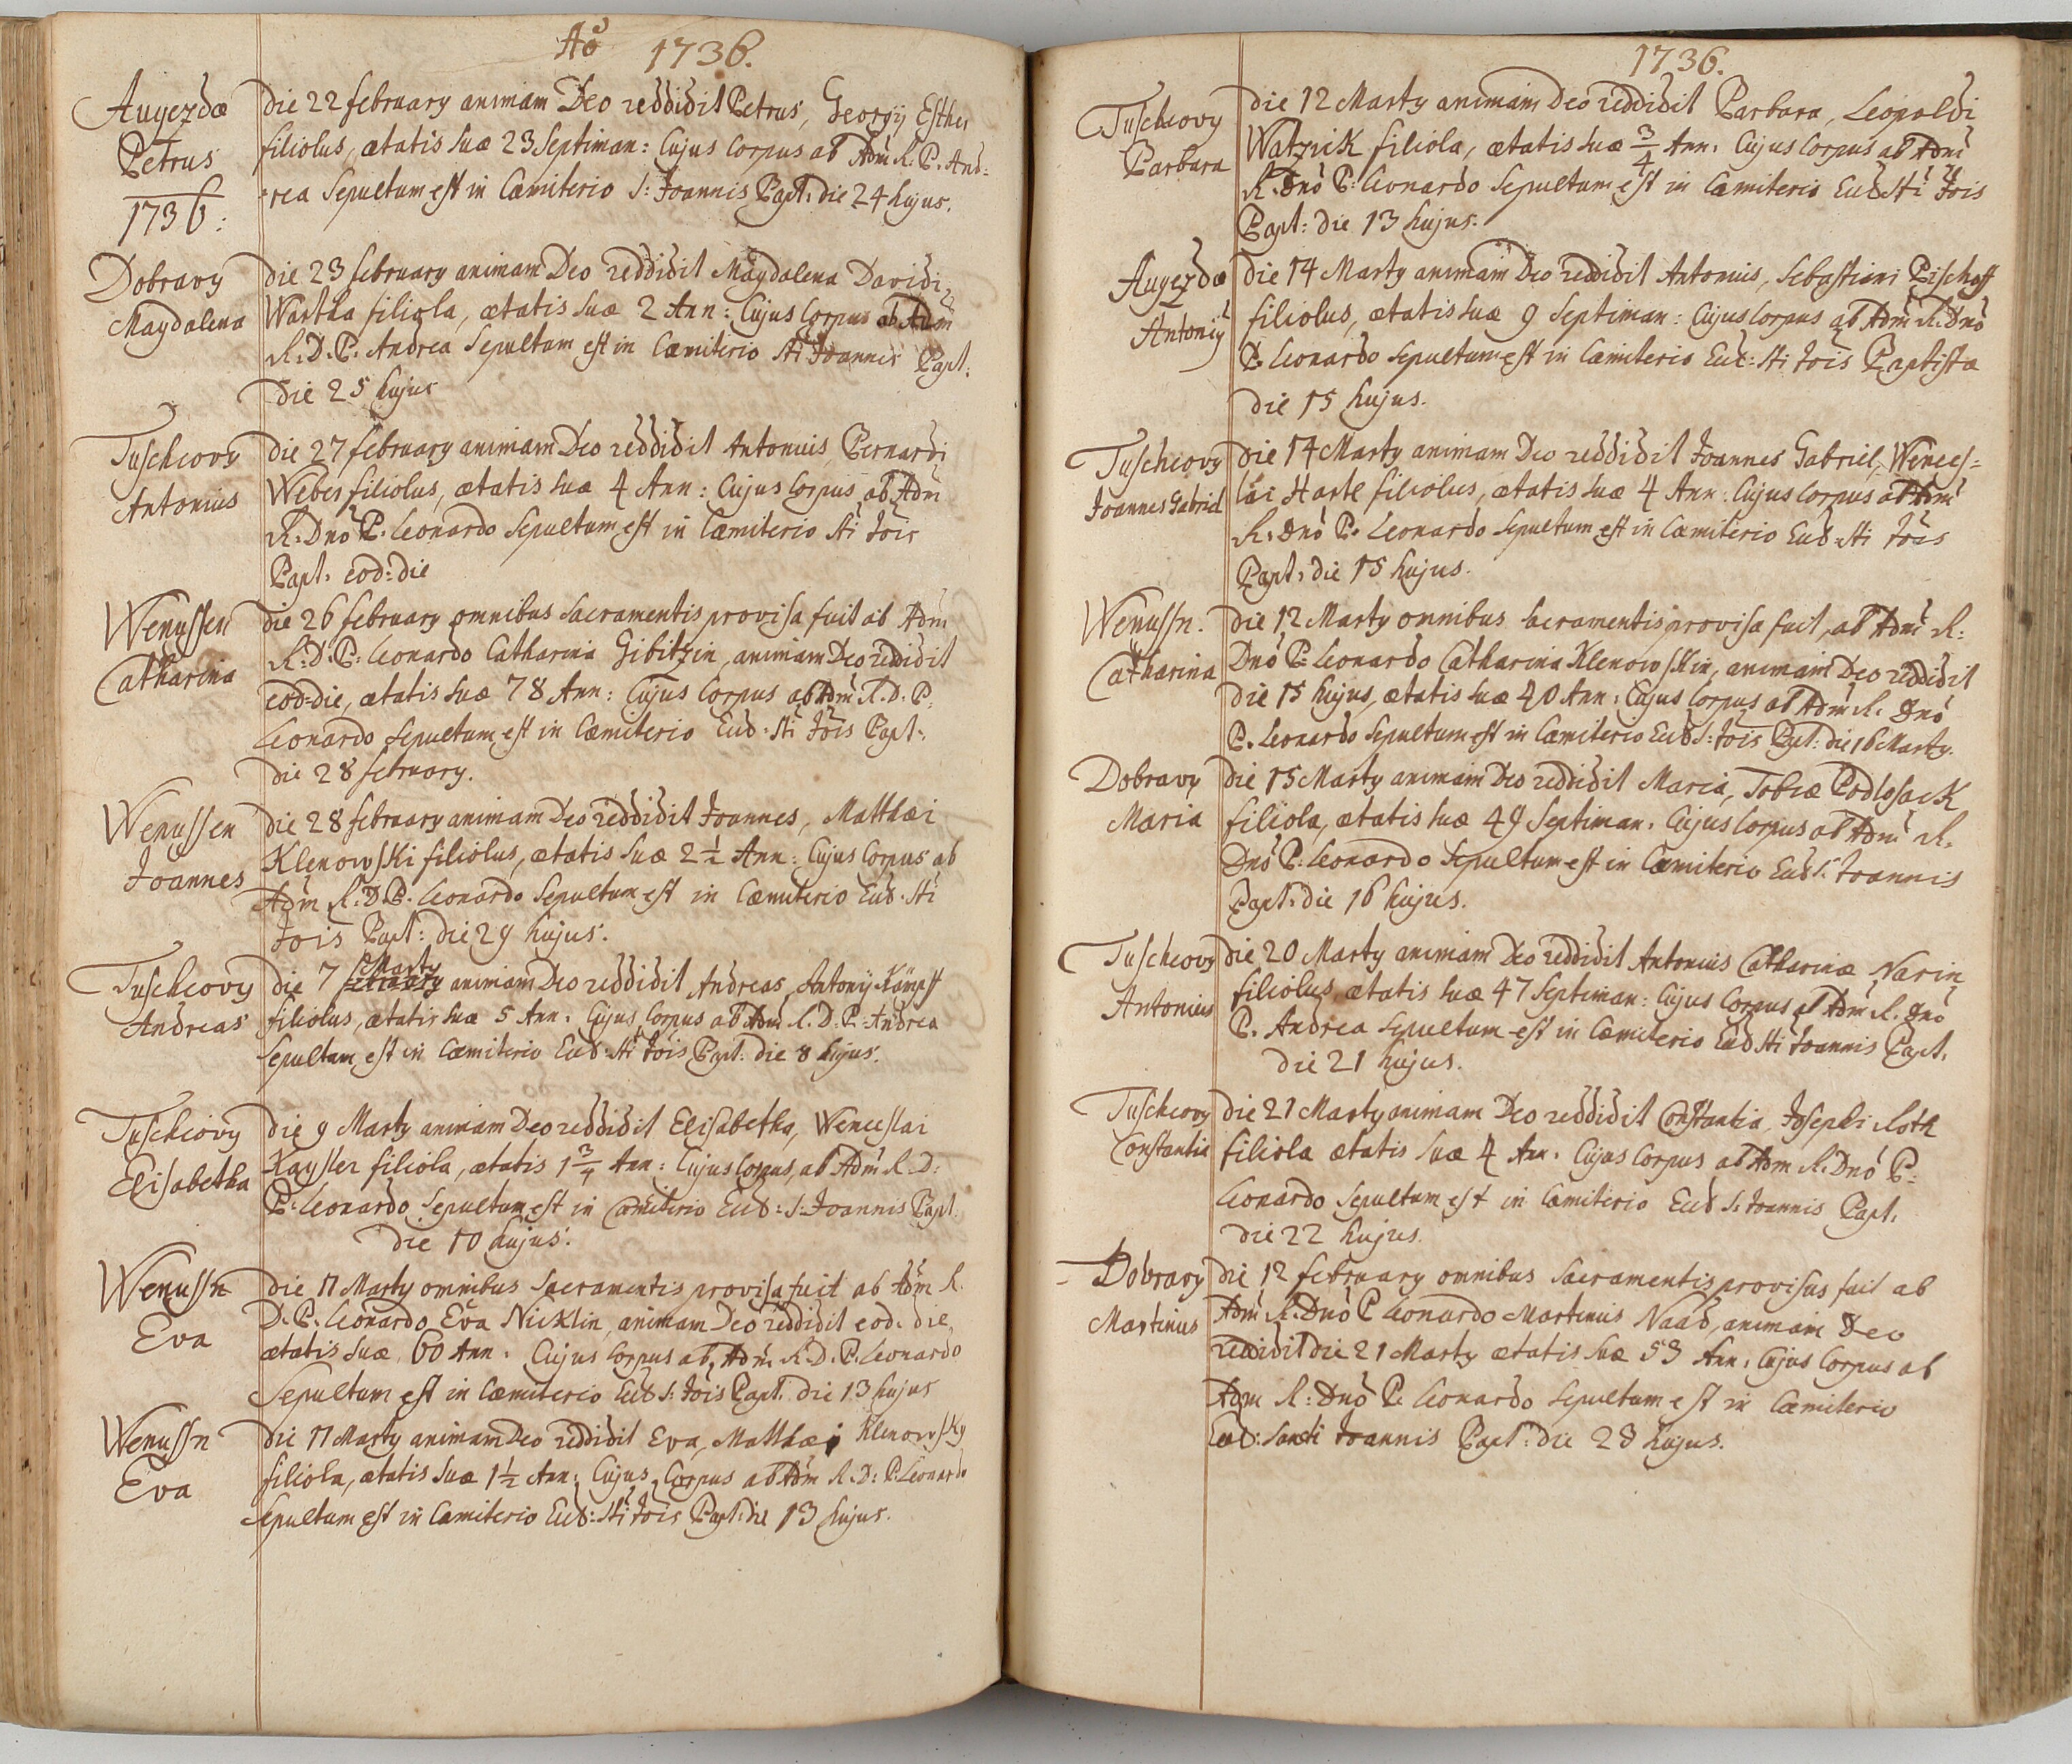 Aō 1736.
Augezdæ
Petrus
1736:
die 22 february animam Deo reddidit Petrus, Georgij Esther
filiolus, ætatis suæ 23 Septiman: Cujus Corpus ab Adm̃ R. P. And:
rea Sepultum est in Cœmiterio S: Joannis Bapt: die 24 hujus.
Dobravy
Magdalena
die 23 february animam Deo reddidit Magdalena Davidi
Wartha filiola, ætatis suæ 2 Ann: Cujus Corpus ab Adm̃
R: D. P. Andrea Sepultum est in Cœmiterio Sti Joannis Bapt:
die 25 hujus
Tuschcovy
Antonius
die 27 february animam Deo reddidit Antonius Bernardi
Weber filiolus, ætatis suæ 4 Ann: Cujus Corpus ab Adm̃
R: Dnō P. Leonardo Sepultum est in Cœmiterio Sti Jōis
Bapt. eod: die
Wenussen
Catharina
die 26 february omnibus sacramentis provisa fuit ab Adm̃
R: D. P: Leonardo Catharina Gibitzin, animam Deo reddidit
eod: die, ætatis suæ 78 Ann: Cujus Corpus ab Adm̃ R. D. P.
Leonardo sepultum est in Cœmiterio Eccl: Sti Jōis Bapt:
die 28 february.
Wenussen
Joannes
die 28 february animam Deo reddidit Joannes, Matthæi
Klenowski filiolus, ætatis suæ 2 1/2 Ann: Cujus Corpus ab
Adm̃ R: D. P. Leonardo Sepultum est in Cœmiterio Eccl: Sti
Jōis Bapt: die 29 hujus.
Tuschcovy
Andreas
Marty
die 7 february animam Deo reddidit Andreas, Antonij Kämpff
filiolus, ætatis suæ 5 Ann: Cujus Corpus ab Adm̃ R. D: P: Andrea
sepultum est in Cœmiterio Eccl: Sti Jōis Bapt: die 8 hujus.
Tuschcovy
Elisabetha
die 9 Marty animam Deo reddidit Elisabetha, Wenceslai
Kaysler filiola, ætatis 1 3/4 Ann: Cujus Corpus, ab Adm̃ R. D:
P: Leonardo Sepultum est in Cœmiterio Eccl: S: Joannis Bapt.
die 10 hujus.
Wenussn
Eva
die 11 Marty omnibus Sacramentis provisa fuit ab Adm̃ R.
D. P. Leonardo Eva Nicklin, animam Deo reddidit eod. die,
ætatis suæ 60 Ann. Cujus Corpus ab Adm̃ R. D. P. Leonardo
Sepultum est in Cœmiterio Eccl S: Jōis Bapt: die 13 hujus
Wenussn
Eva
die 11 Marty animam Deo reddidit Eva, Matthæi Klenowsky
filiola, ætatis suæ 1 1/2 Ann: Cujus Corpus ab Adm̃ R. D: P. Leonardo
sepultum est in Cœmiterio Eccl: Sti Jōis Bapt: die 13 hujus.
1736.
Tuschcovy
Barbara
die 12 Marty animam Deo reddidit Barbara, Leopoldi
Watzick filiola, ætatis suæ 3/4 Ann: Cujus Corpus ab Adm̃
R. Dnō P: Leonardo sepultum est in Cœmiterio Eccl Sti Jōis
Bapt: die 13 hujus.
Augezdæ
Antonij
die 14 Marty animam Deo reddidit Antonius, Sebastiani Bischoff
filiolus, ætatis suæ 9 Septiman: Cujus Corpus ab Adm̃ R. Dnō
P. Leonardo sepultum est in Cœmiterio Eccl: Sti Jois Baptistæ
die 15 hujus.
Tuschcovy
Joannes Gabriel
die 14 Marty animam Deo reddidit Joannes Gabriel, Wences=
lai Hartl filiolus, ætatis suæ 4 Ann. Cujus Corpus ab Adm̃
R. Dnō P. Leonardo Sepultum est in Cœmiterio Eccl: Sti Jōis
Bapt: die 15 hujus.
Wenussn.
Catharina
die 12 Marty omnibus sacramentis provisa fuit, ab Adm̃ R:
Dnō P: Leonardo Catharina Klenowskin, animam Deo reddidit
die 15 hujus, ætatis suæ 40 Ann: Cujus Corpus ab Adm̃ R. Dnō
P. Leonardo Sepultum est in Cœmiterio Eccl S: Jōis Bapt: die 16 Marty.
Dobravy
Maria
die 15 Marty animam Deo reddidit Maria, Tobiæ Podlesack
filiola, ætatis suæ 49 Septiman: Cujus Corpus ab Adm̃ R.
Dnō P. Leonardo Sepultum est in Cœmiterio Eccl S. Joannis
Bapt: die 16 hujus.
Tuschcovy
Antonius
die 20 Marty animam Deo reddidit Antonius Catharinæ Narin
filiolus, ætatis suæ 47 Septiman: Cujus Corpus ab Adm̃ R. Dnō
P. Andrea sepultum est in Cœmiterio Eccl Sti Joannis Bapt.
die 21 hujus.
Tuschcovy
Constantia
die 21 Marty animam Deo reddidit Constantia, Josephi Roth
filiola ætatis suæ 4 Ann. Cujus Corpus ab Adm R. Dnō P:
Leonardo Sepultum est in Cœmiterio Eccl S. Joannis Bapt.
die 22 hujus.
Dobravy
Martinus
die 12 february omnibus sacramentis provisus fuit ab
Adm̃ R. Dnō P Leonardo Martinus Naad, animam Deo
reddidit die 21 Marty ætatis suæ 53 Ann: Cujus Corpus ab
Adm R: Dnō P. Leonardo sepultum est in Cœmiterio
Eccl: Sancti Joannis Bapt: die 23 hujus.